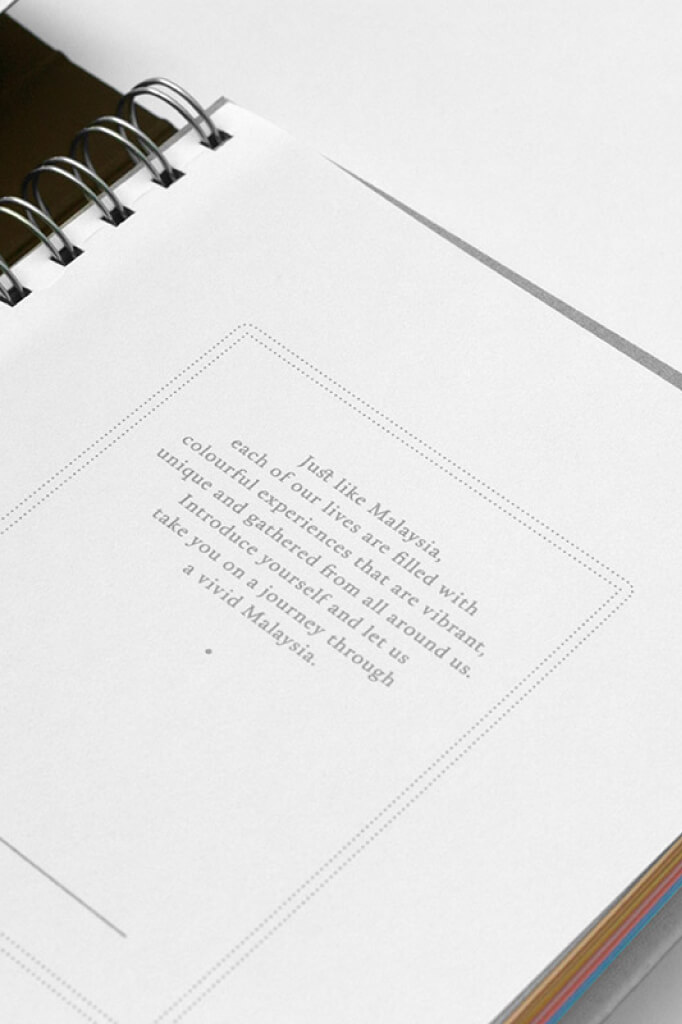 Just like Malaysia,
each of our lives are filled with
colourful experiences that are vibrant,
unique and gathered from all around us.
Introduce yourself and let us
take you on a journey through
a vivid Malaysia.